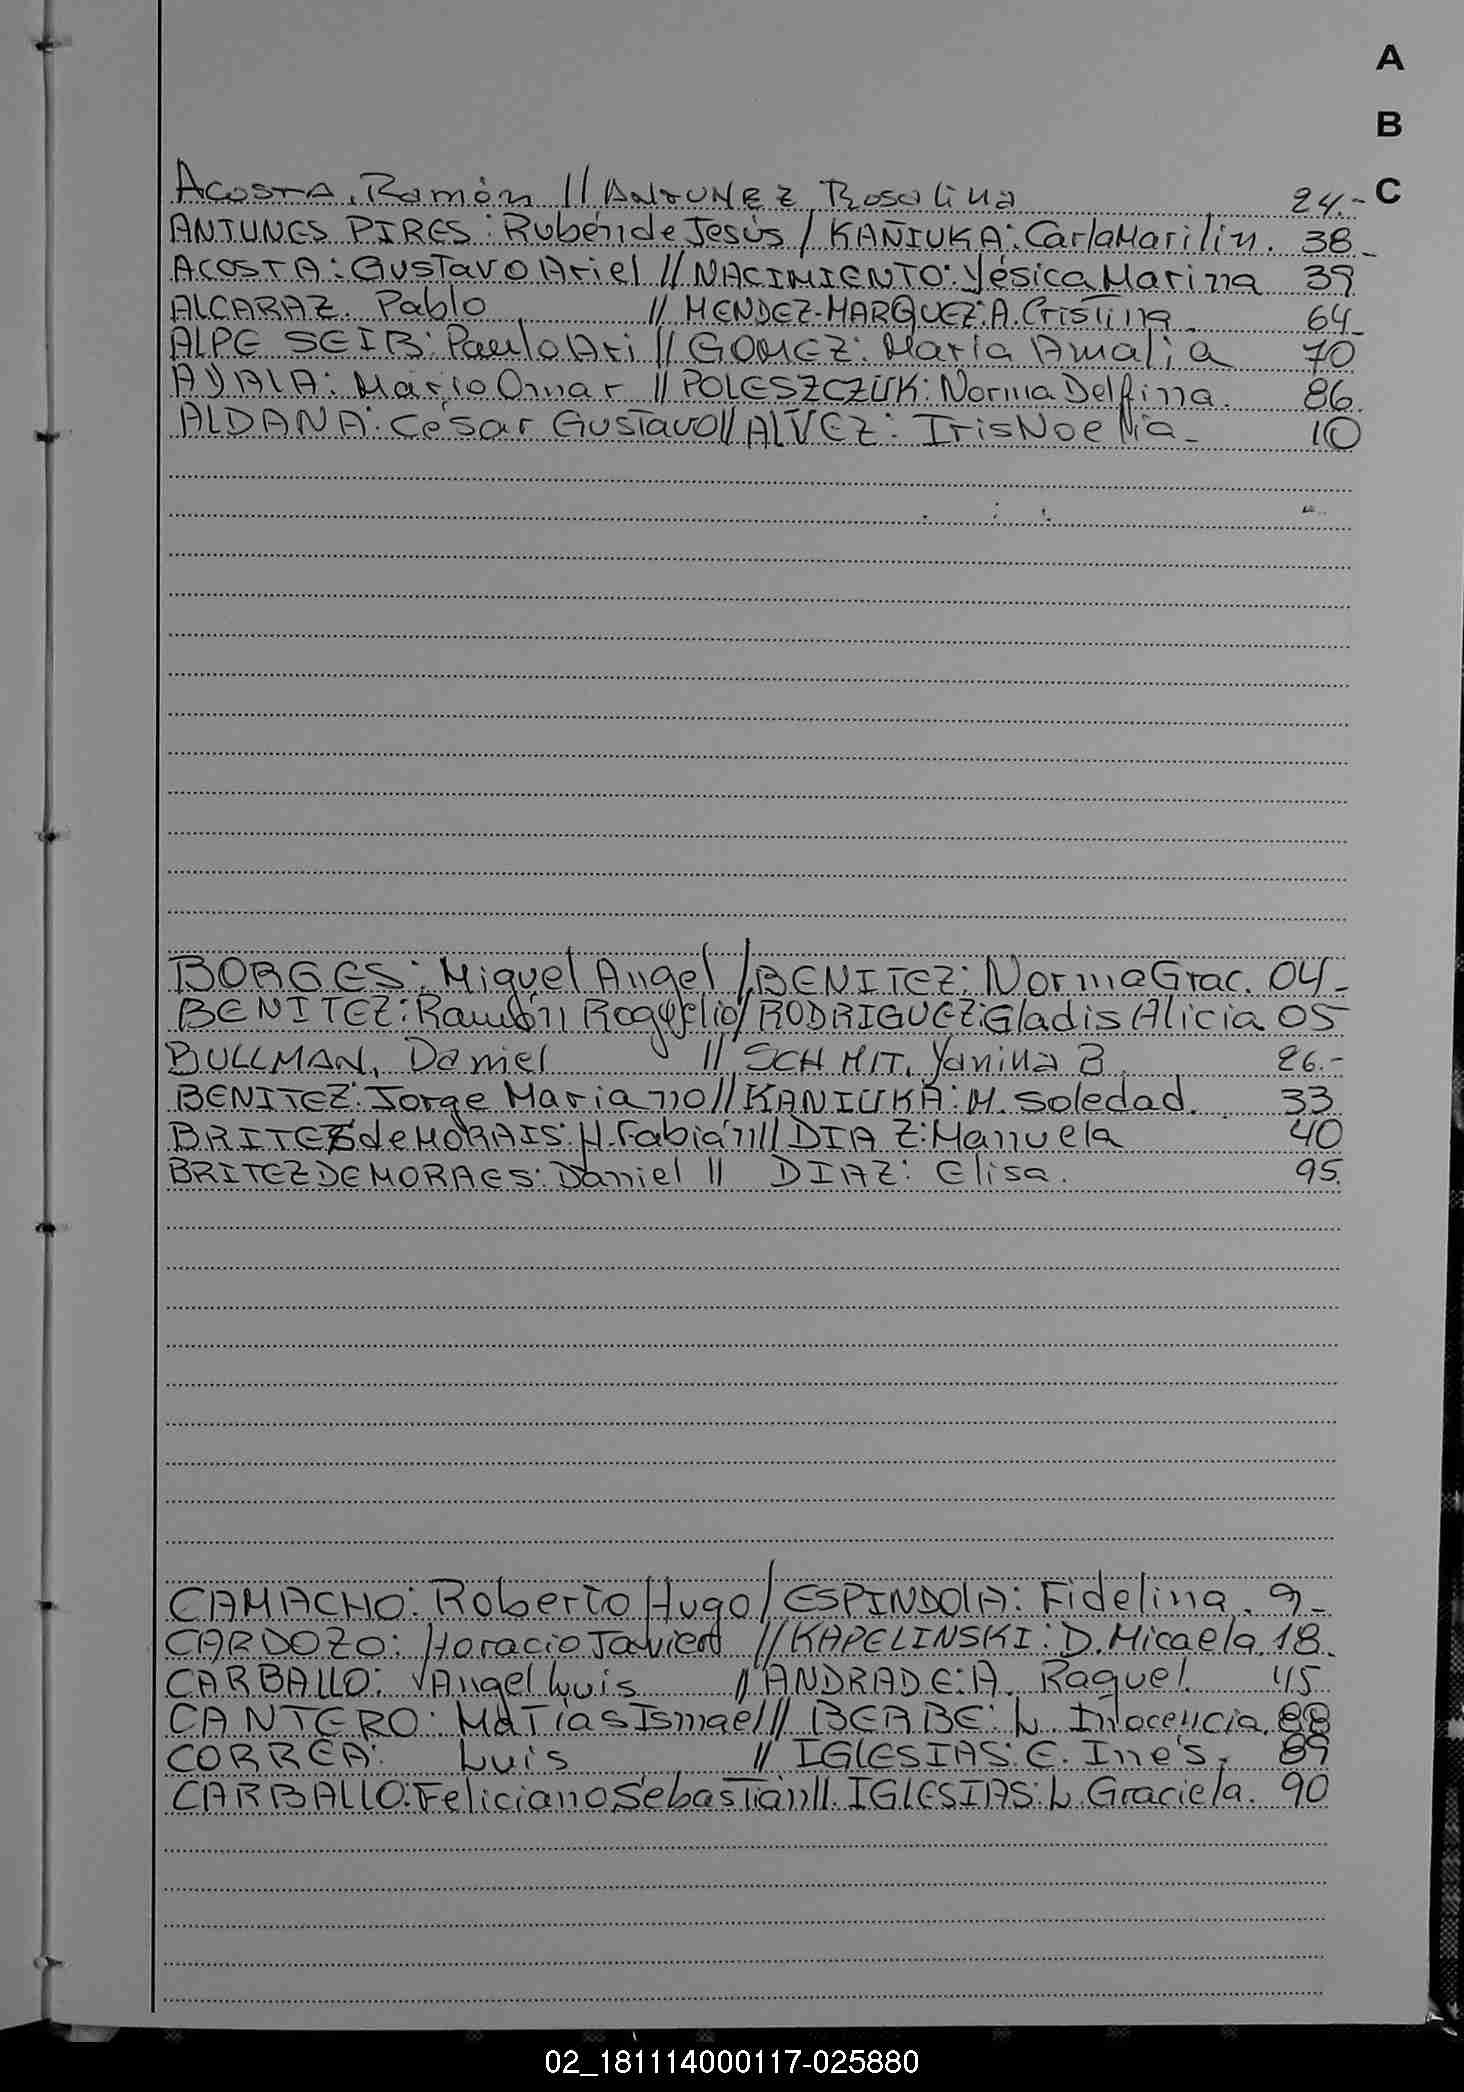 A
B
C
ACOSTA, Ramón // ANTUNEZ Rosalina 24.-
ANTUNES PIRES: Rubén de Jesús / KAÑIUKA: Carla Marilin. 38_
ACOSTA: Gustavo Ariel // NACIMIENTO: Yésica Marina 39
ALCARAZ. Pablo // MENDEZ-MARQUEZ: A. Cristina. 64_
ALPE SEIB: Paulo Ari // GOMEZ: María Amalia 70
AYALA: Mario Omar // POLESZCZUK: Norma Delfina. 86.
ALDANA: César Gustavo // ALVEZ: Iris Noelia_ 10
BORGES: Miguel Angel / BENITEZ: Norma Grac. 04_
BENITEZ: Ramón Rogelio / RODRIGUEZ: Gladis Alicia 05
BULLMAN, Daniel // SCHMIT, Yanina B. 26.-
BENITEZ: Jorge Mariano // KANIUKA: M. Soledad. 33
BRITEZ de MORAIS: H. Fabián // DIAZ: Manuela 40
BRITEZ DE MORAES: Daniel // DIAZ: Elisa. 95.
CAMACHO: Roberto Hugo / ESPINDOLA: Fidelina. 9_
CARDOZO: Horacio Javier // KAPELINSKI: D. Micaela. 18.
CARBALLO: Angel Luis // ANDRADE: A. Raquel. 45
CANTERO: Matías Ismael // BERBE: L. Inocencia. 88
CORREA: Luis // IGLESIAS: E. Inés. 89
CARBALLO: Feliciano Sebastián // IGLESIAS: L. Graciela. 90
02_181114000117-025880